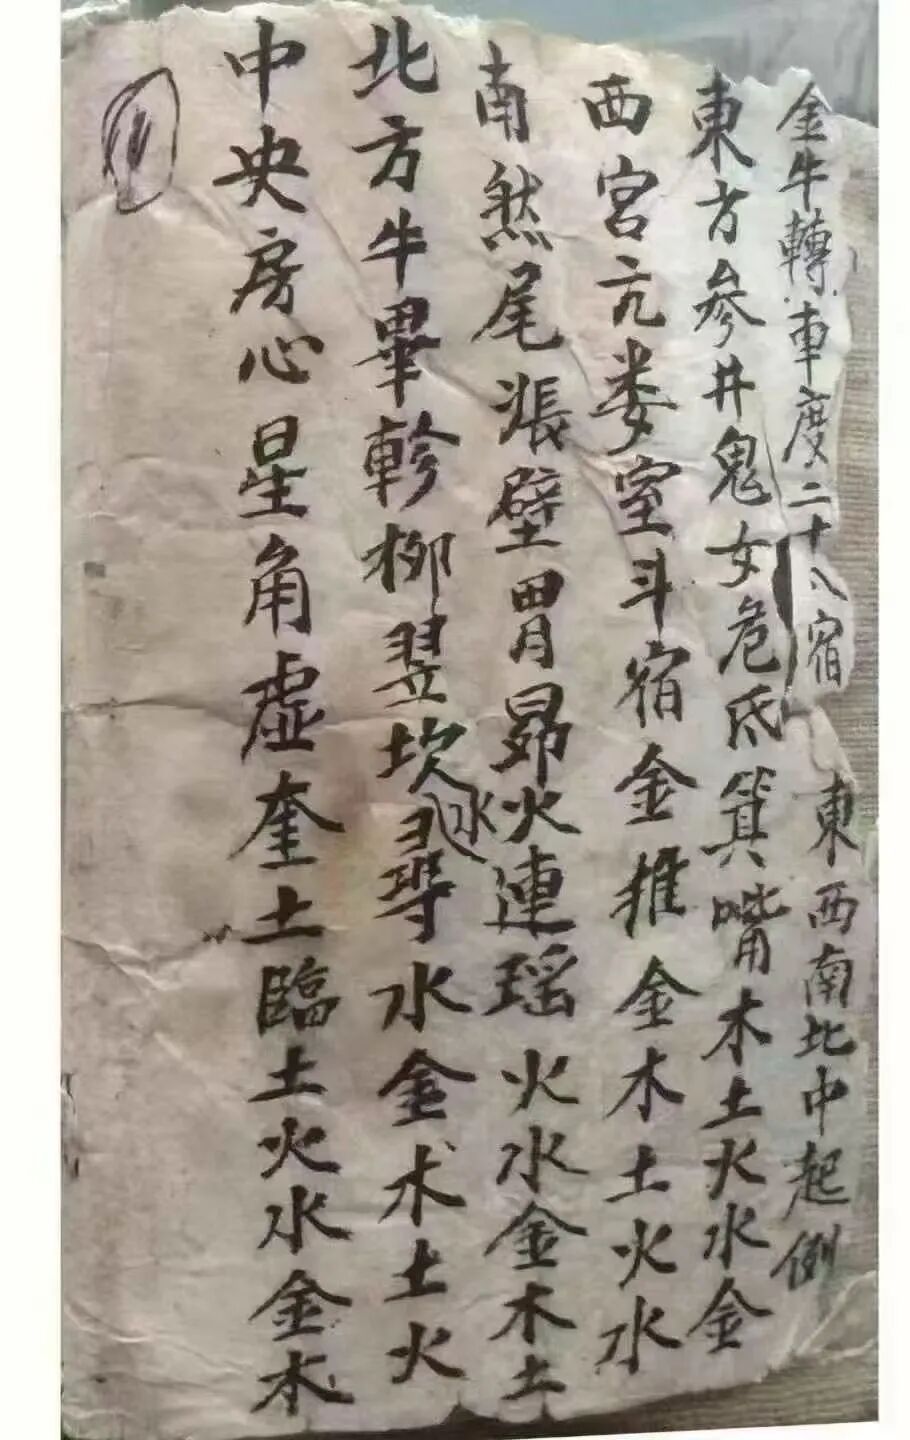 金牛轉車度二十八宿 東西南北中起例
東方參井鬼女危氐箕嘴木土火水金
西宮亢娄室斗宿金推金木土火水
南然尾漲壁胃昴火連瑶火水金木土
北方牛畢軫柳翌坎水尋水金木土火
中央房心星角虚奎土臨土火水金木